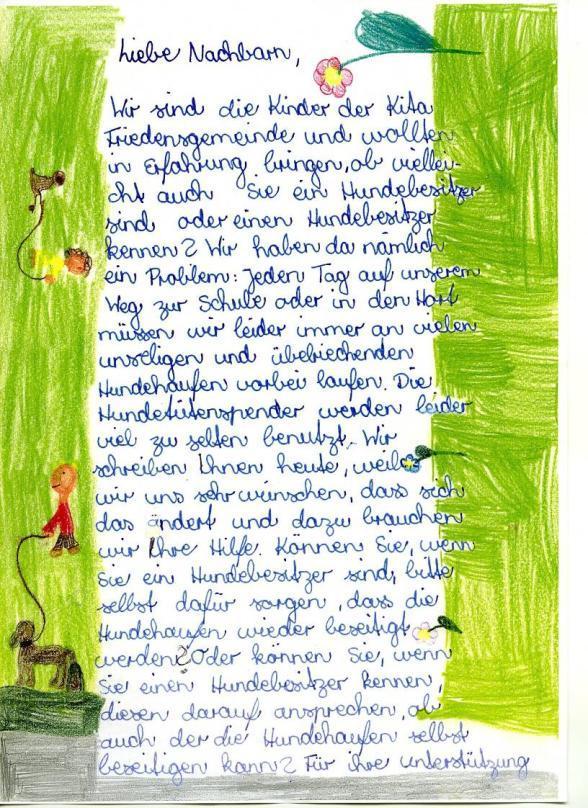 Liebe Nachbarn,
Wir sind die Kinder der Kita
Friedensgemeinde und wollten
in Erfahrung bringen, ob viellei-
cht auch Sie ein Hundebesitzer
sind oder einen Hundebesitzer
kennen? Wir haben da nämlich
ein Problem: Jeden Tag auf unserem
Weg zur Schule oder in den Hort
müssen wir leider immer an vielen
unseligen und übelriechenden
Hundehaufen vorbei laufen. Die
Hundetütenspender werden leider
viel zu selten benutzt. Wir
schreiben Ihnen heute, weil
wir uns sehr wünschen, dass sich
das ändert und dazu brauchen
wir Ihre Hilfe. Können Sie, wenn
Sie ein Hundebesitzer sind, bitte
selbst dafür sorgen, dass die
Hundehaufen wieder beseitigt
werden? Oder können Sie, wenn
Sie einen Hundebesitzer kennen,
diesen darauf ansprechen, ob
auch der die Hundehaufen selbst
beseitigen kann? Für ihre unterstützung